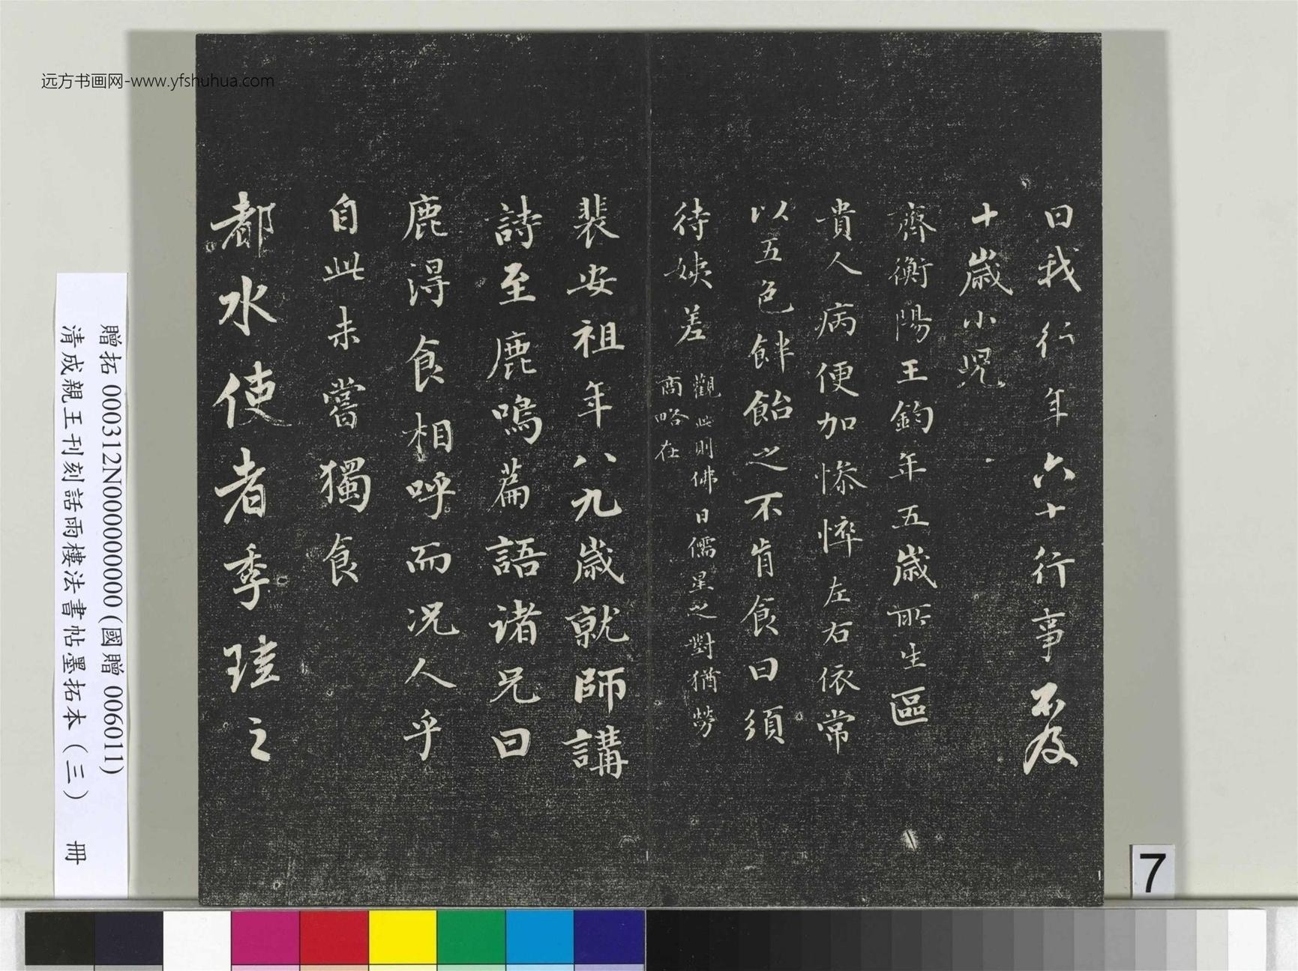 曰我行年六十行事不及
十歲小兒
齊衡陽王鈞年五歲所生區
貴人病便加慘悴左右依常
以五色餅飴之不肯食曰須
待姨差
觀此則佛日儒星之對猶勞
商略在
裴安祖年八九歲就師講
詩至鹿鳴篇語諸兄曰
鹿得食相呼而況人乎
自此未嘗獨食
都水使者季珪之
远方书画网-www.yfshuhua.com
贈拓 000312N000000000 (國贈 006011)
清成親王刊刻話雨樓法書帖墨拓本(三) 冊
7